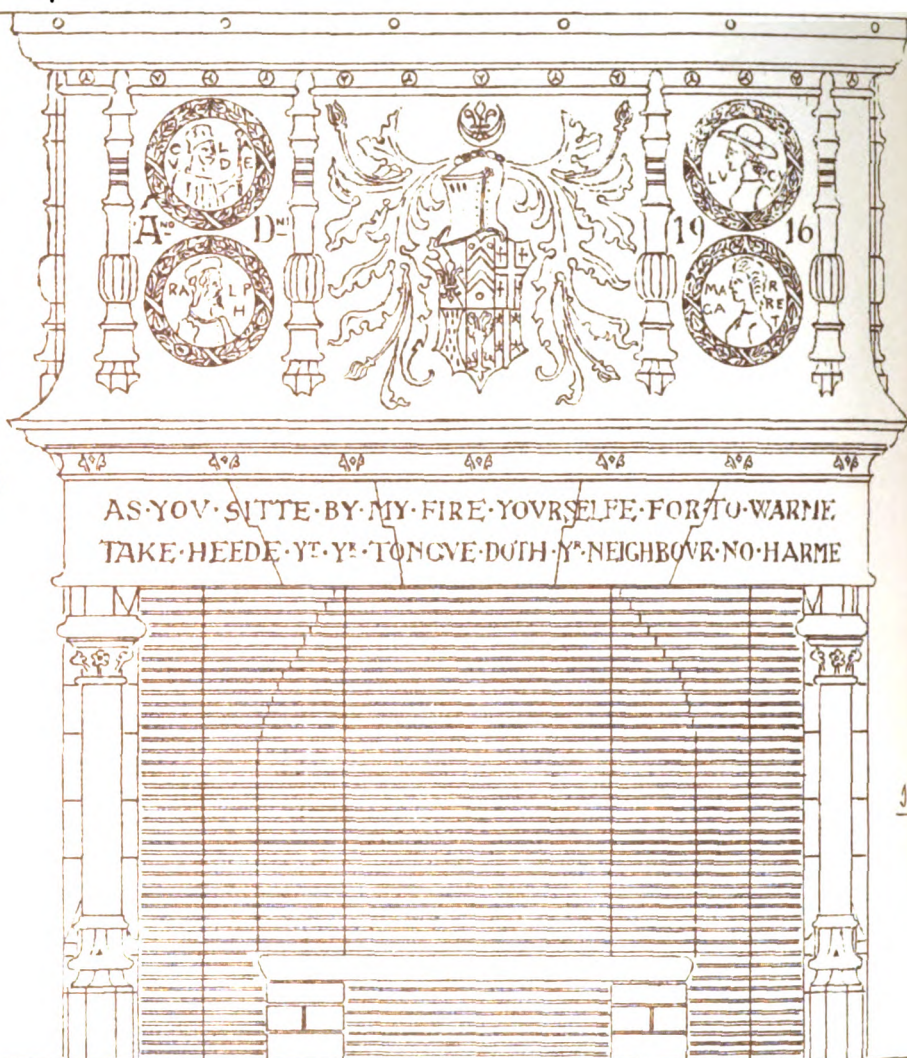 CLVDE
LVCY
Aᴺᴼ Dᴺᴵ 1916
RALPH
MARGARET
AS·YOV·SITTE·BY·MY·FIRE·YOVRSELFE·FOR·TO·WARME
TAKE·HEEDE·Yᵀ·Yᴿ·TONGVE·DOTH·Yᴿ·NEIGHBOVR·NO·HARME